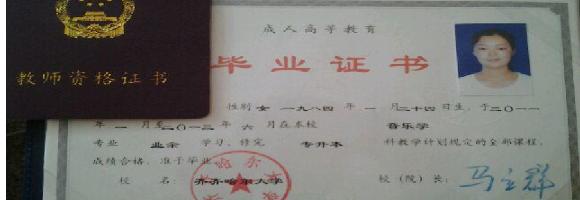 教师资格证书
成人高等教育
毕业证书
性别 女 一九八四 年 一 月二十四日生，于二〇一一
年 一 月至二〇一三 年 六 月在本校 音乐学
专业 业余 学习，修完 专升本 科教学计划规定的全部课程，
成绩合格，准予毕业。
校 名： 齐齐哈尔大学 校（院）长：